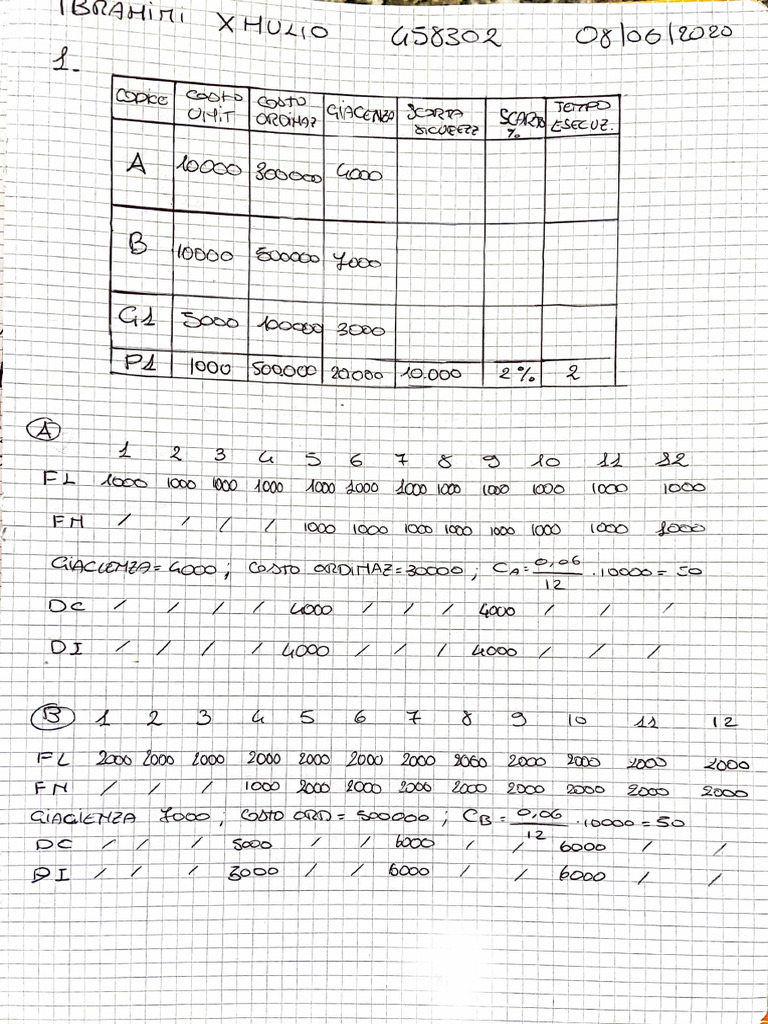 IBRAHIMI XHULIO 458302 08/06/2020
1.
CODICE COSTO UNIT COSTO ORDINAZ GIACENZA SCORTA SICUREZZ SCARTO % TEMPO ESECUZ.
A 10000 300000 4000
B 10000 500000 7000
G1 5000 100000 3000
P1 1000 500.000 20.000 10.000 2% 2
A
1 2 3 4 5 6 7 8 9 10 11 12
FL 1000 1000 1000 1000 1000 1000 1000 1000 1000 1000 1000 1000
FN / / / / 1000 1000 1000 1000 1000 1000 1000 1000
GIACIENZA = 4000 ; COSTO ORDINAZ = 30000 ; CA = 0,06/12 · 10000 = 50
DC / / / / 4000 / / / 4000 / / /
DI / / / / 4000 / / / 4000 / / /
B 1 2 3 4 5 6 7 8 9 10 11 12
FL 2000 2000 2000 2000 2000 2000 2000 2000 2000 2000 2000 2000
FN / / / 1000 2000 2000 2000 2000 2000 2000 2000 2000
GIACIENZA 7000 ; COSTO ORD = 500000 ; CB = 0,06/12 · 10000 = 50
DC / / / 5000 / / 6000 / / 6000 / /
DI / / / 5000 / / 6000 / / 6000 / /